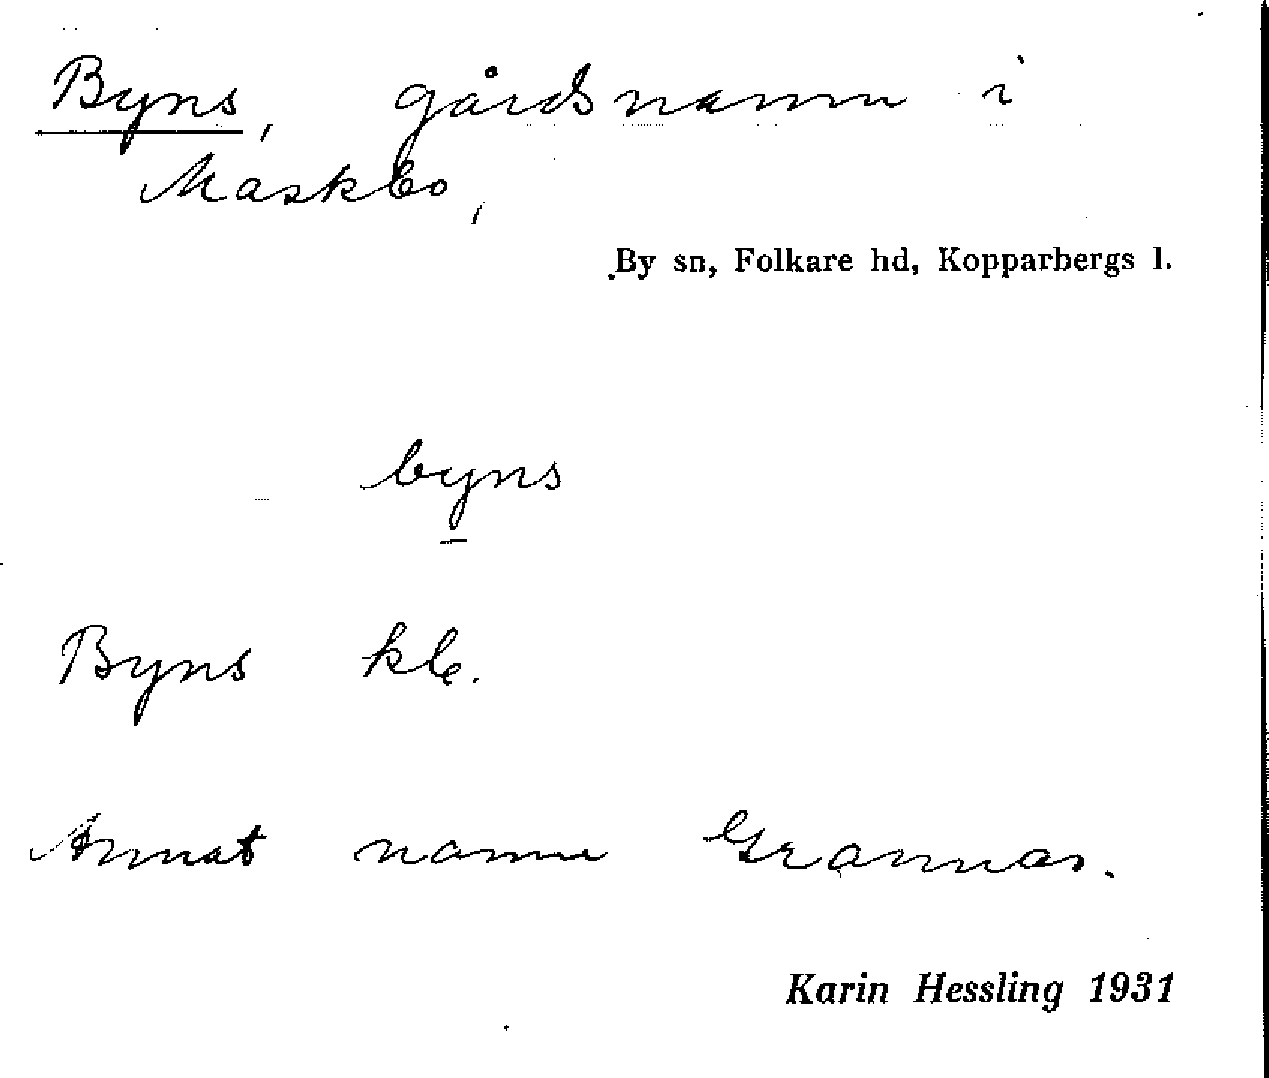 Byns, gårdsnamn i
Maskbo,
By sn, Folkare hd, Kopparbergs l.
byns
Byns kb.
Annat namn Grannas.
Karin Hessling 1931